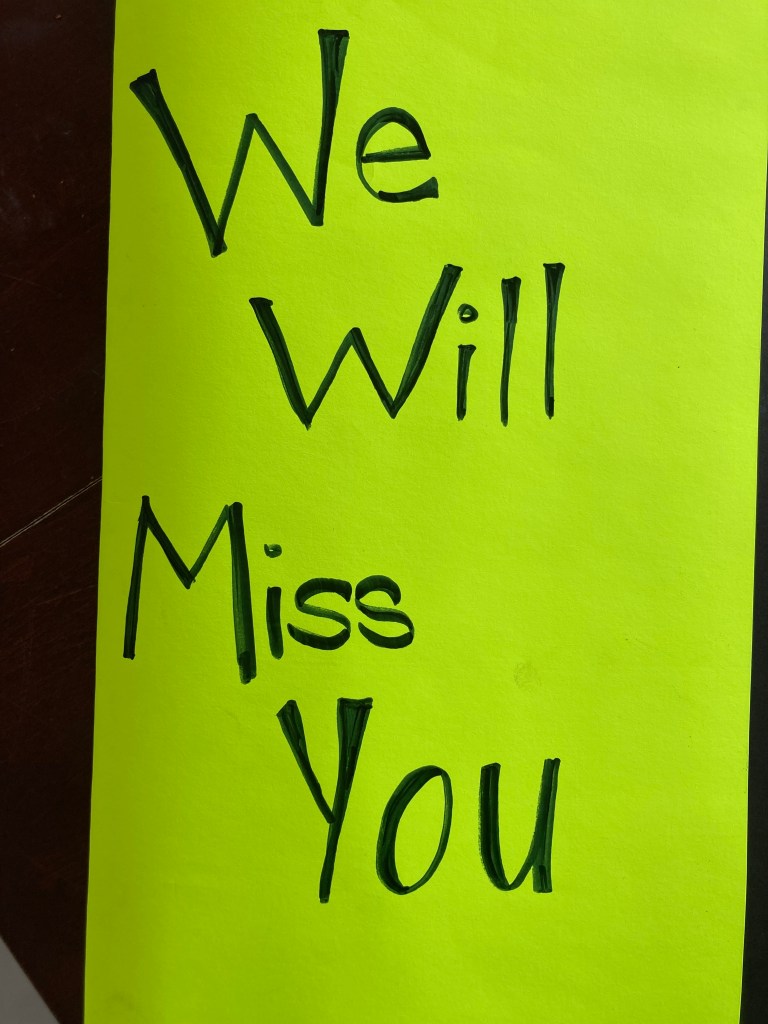 We
Will
Miss
You